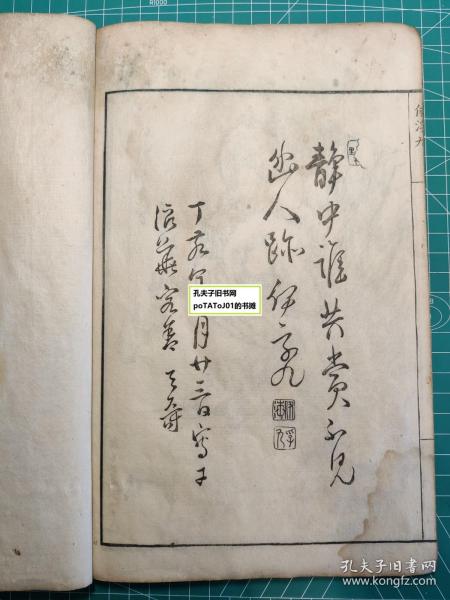 靜中誰共賞不見
幽人跡 伊孚九
丁亥
月廿三日寫于
浪華客舍 天壽
伊孚九
孔夫子旧书网
poTAToJ01的书摊
孔夫子旧书网
www.kongfz.com